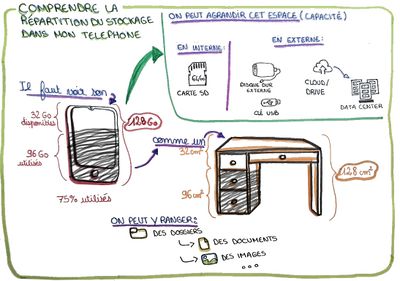 COMPRENDRE LA
RÉPARTITION DU STOCKAGE
DANS MON TELEPHONE
ON PEUT AGRANDIR CET ESPACE (CAPACITÉ)
EN INTERNE:
EN EXTERNE:
64Go
CARTE SD
DISQUE DUR
EXTERNE
CLÉ USB
CLOUD/
DRIVE
DATA CENTER
Il faut voir son
32 Go
disponibles
128 Go
96 Go
utilisés
75% utilisés
comme un
32 cm²
96 cm²
128 cm²
ON PEUT Y RANGER:
DES DOSSIERS
DES DOCUMENTS
DES IMAGES
...